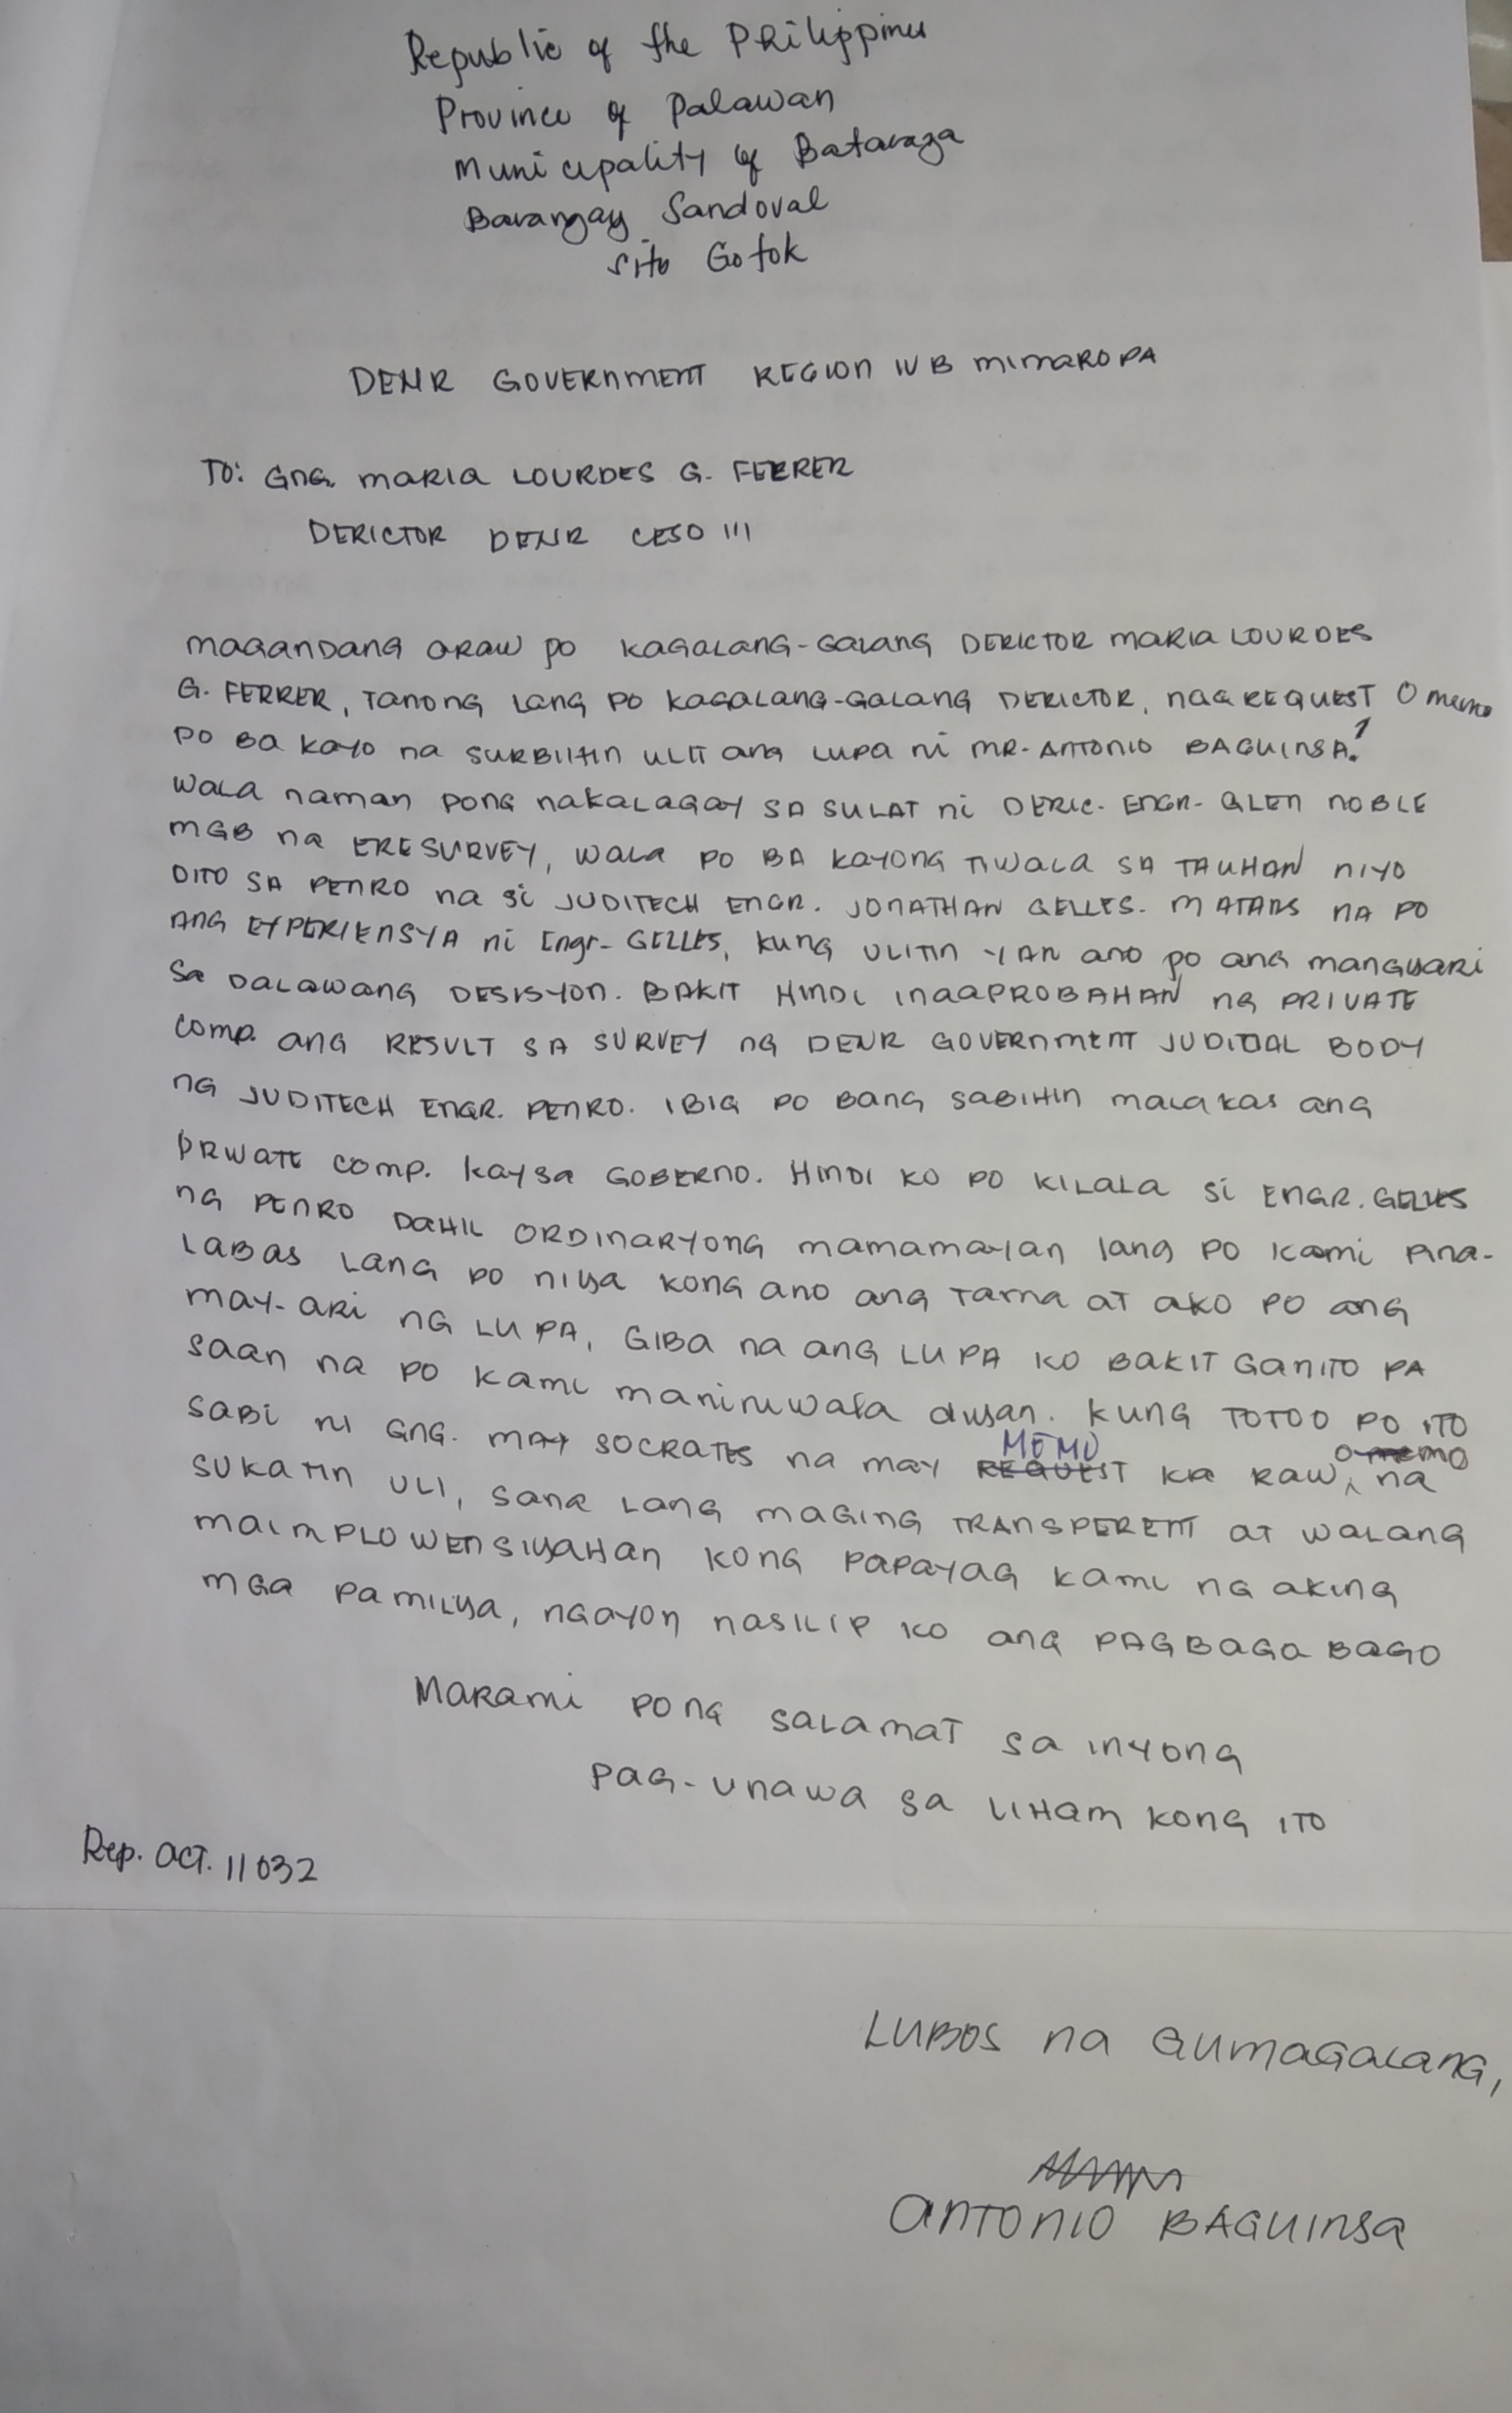 Republic of the Philippines
Province of Palawan
Municipality of Bataraza
Barangay Sandoval
Sito Gotok
DENR GOVERNMENT REGION IVB MIMAROPA
TO: GNG. MARIA LOURDES G. FERRER
DERICTOR DENR CESO III
MAGANDANG ARAW PO KAGALANG-GALANG DERICTOR MARIA LOURDES
G. FERRER, TANONG LANG PO KAGALANG-GALANG DERICTOR, NAG REQUEST O memo
PO BA KAYO NA SURBIHIN ULIT ANG LUPA NI MR. ANTONIO BAGUINSA?
WALA NAMAN PONG NAKALAGAY SA SULAT NI DERIC. ENGR. GLEN NOBLE
MGB NA ERESURVEY, WALA PO BA KAYONG TIWALA SA TAUHAN NIYO
DITO SA PENRO NA SI JUDITECH ENGR. JONATHAN GELLES. MATAAS NA PO
ANG EXPERIENSYA NI Engr. GELLES, KUNG ULITIN YAN ANO PO ANG MANGYARI
SA DALAWANG DESISYON. BAKIT HINDI INAAPROBAHAN NG PRIVATE
COMP. ANG RESULT SA SURVEY NG DENR GOVERNMENT JUDITIAL BODY
NG JUDITECH ENGR. PENRO. IBIG PO BANG SABIHIN MALAKAS ANG
PRIVATE COMP. KAYSA GOBERNO. HINDI KO PO KILALA SI ENGR. GELLES
NG PENRO DAHIL ORDINARYONG MAMAMAYAN LANG PO KAMI PINA-
LABAS LANG PO NIYA KONG ANO ANG TAMA AT AKO PO ANG
MAY-ARI NG LUPA, GIBA NA ANG LUPA KO BAKIT GANITO PA
SAAN NA PO KAMI MANINIWALA diyan. KUNG TOTOO PO ITO
SABI NI GNG. MAY SOCRATES NA MAY REQUEST MEMO KA RAW, O memo NA
SUKATIN ULI, SANA LANG MAGING TRANSPERENT AT WALANG
MAIMPLOWENSIYAHAN KONG PAPAYAG KAMI NG AKING
MGA PAMILYA, NGAYON NASILIP KO ANG PAGBAGO BAGO
MARAMI PONG SALAMAT SA INYONG
PAG-UNAWA SA LIHAM KONG ITO
Rep. ACT. 11032
LUBOS NA GUMAGALANG,
ANTONIO BAGUINSA